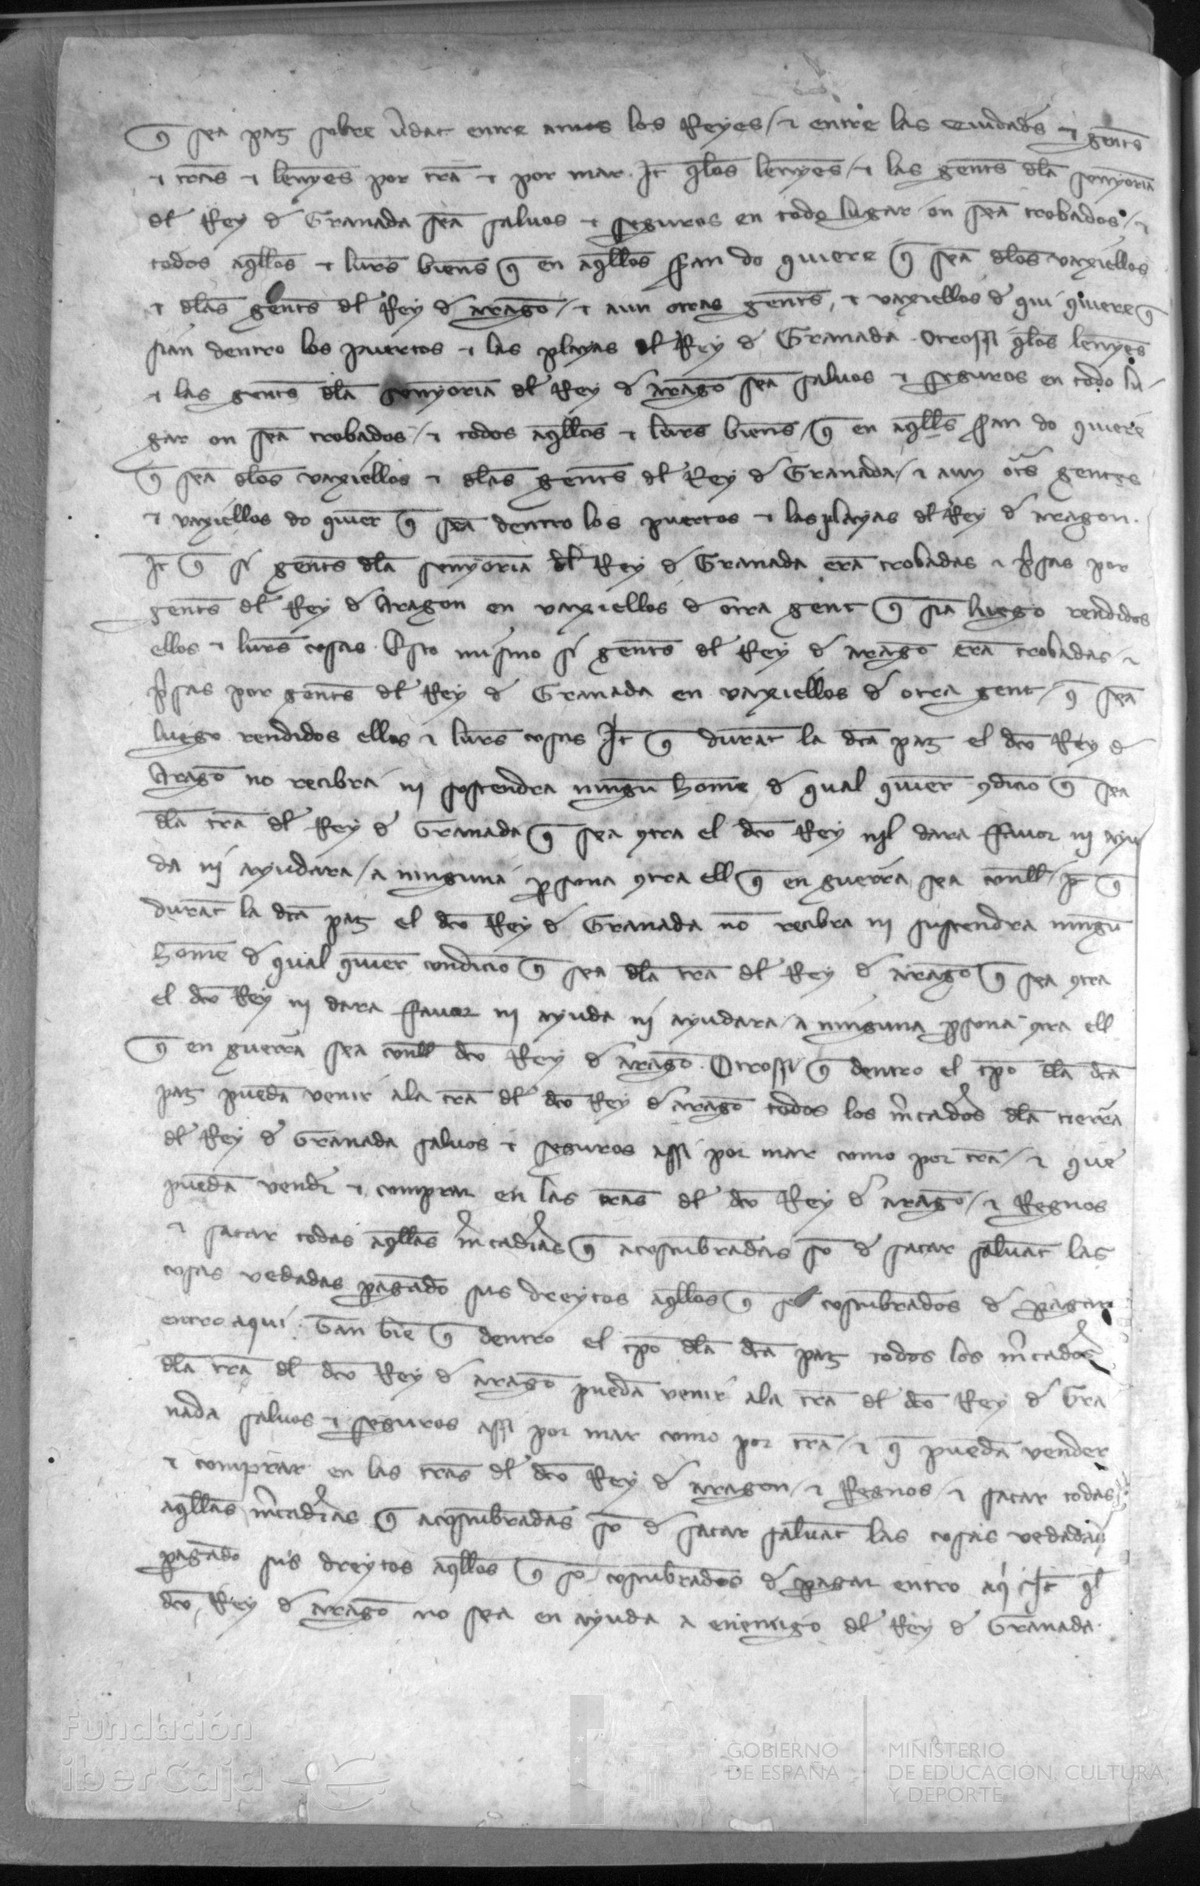 q̄ sea paz sobre v̄dat entre amos los Reyes / ⁊ entre las Ciudades ⁊ gent̄s
⁊ tr̄as ⁊ leny̅es por tr̄a ⁊ por mar. It̄ q̄los leny̅es / ⁊ las gent̄s dl̄a senyoria
dl̄ Rey d̄ Granada seā saluos ⁊ seguros en todo lugar on seā trobados / ⁊
todos aq̄llos ⁊ lurs bien̄s q̄ en aq̄llos s̄an do quiere q̄ seā dl̄os vaxiellos
⁊ dl̄as gent̄s dl̄ Rey d̄ aragō / ⁊ aun otras gent̄s, ⁊ vaxiellos d̄ qui quiere q̄
sian dentro los puertos ⁊ las playas dl̄ Rey d̄ Granada. Otrossi q̄los leny̅es
⁊ las gent̄s dl̄a senyoria dl̄ Rey d̄ aragō seā saluos ⁊ seguros en todo lu
gar on seā trobados / ⁊ todos aq̄llos ⁊ lurs bien̄s / q̄ en aq̄lls s̄an do quiere
q̄ seā dl̄os vaxiellos ⁊ dl̄as gent̄s dl̄ Rey d̄ Granada / ⁊ aun ot̄s gentes
⁊ vaxiellos do quier q̄ seā dentro los puertos ⁊ las playas dl̄ Rey d̄ aragon.
It̄ q̄ si gent̄s dl̄a senyoria dl̄ Rey d̄ Granada erā trobadas ⁊ p̄sas por
gent̄s dl̄ Rey d̄ Aragon en vaxiellos d̄ otra gent q̄ siā luego rendidos
ellos ⁊ lurs cosas. Esto mismo si gent̄s dl̄ Rey d̄ aragō erā trobadas / ⁊
p̄sas por gent̄s dl̄ Rey d̄ Granada en vaxiellos d̄ otra gent / q̄ seā
luego rendidos ellos ⁊ lurs cosas It̄ q̄ durāt la dc̄a paz el dc̄o Rey d̄
Aragō no recibra ni sostendra ningū home d̄ qual quier 9dicio q̄ sea
dl̄a tr̄a dl̄ Rey d̄ Granada q̄ sea 9tra el dc̄o Rey nil dara ffauor ni ayu
da ni ayudara / a ninguna p̄sona 9tra ell q̄ en guerra sea conll / It̄ q̄
durāt la dc̄a paz el dc̄o Rey d̄ Granada no recibra ni sustendra ningū
home d̄ qual quier condicio q̄ sea dl̄a tr̄a dl̄ Rey d̄ aragō q̄ sea 9tra
el dc̄o Rey ni dara ffauor ni ayuda ni ayudara / a ninguna p̄sona 9tra ell
q̄ en guerra sea conll dc̄o Rey d̄ aragō. Otrossi q̄ dentro el tp̄o dl̄a dc̄a
paz puedā venir ala tr̄a dl̄ dc̄o Rey d̄ aragō todos los m̄cados dl̄a tierra
dl̄ Rey d̄ Granada saluos ⁊ seguros assi por mar como por tr̄a / ⁊ que
puedā vend̄r ⁊ comprar en las tr̄as dl̄ dc̄o Rey d̄ aragō / ⁊ Regnos
⁊ sacar todas aq̄llas m̄cad̄ias q̄ acostūbradas sō d̄ sacar saluāt las
cosas vedadas pagādo sus dreytos aq̄llos q̄ sō costūbrados d̄ pagar
entro aqui. Otan biē q̄ dentro el tp̄o dl̄a dc̄a paz todos los m̄cados
dl̄a tr̄a dl̄ dc̄o Rey d̄ aragō puedā venir ala tr̄a dl̄ dc̄o Rey d̄ Gra
nada saluos ⁊ seguros assi por mar como por tr̄a / ⁊ q̄ puedā vender
⁊ comprar en las tr̄as dl̄ dc̄o Rey d̄ aragon / ⁊ Regnos / ⁊ sacar todas
aq̄llas m̄cad̄ias q̄ acostūbradas sō d̄ sacar saluāt las cosas vedadas
pagādo sus dreytos aq̄llos q̄ sō costūbrados d̄ pagar entro aq̄i It̄ q̄l
dc̄o Rey d̄ aragō no sea en ayuda a enemigo dl̄ Rey d̄ Granada.
Fundación
iberCaja
GOBIERNO
DE ESPAÑA
MINISTERIO
DE EDUCACIÓN, CULTURA
Y DEPORTE